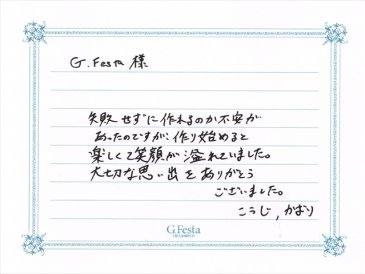 G.Festa 様
失敗せずに作れるのか不安が
あったのですが、作り始めると
楽しくて笑顔が溢れていました。
大切な思い出をありがとう
ございました。
こうじ, かおり
G.Festa